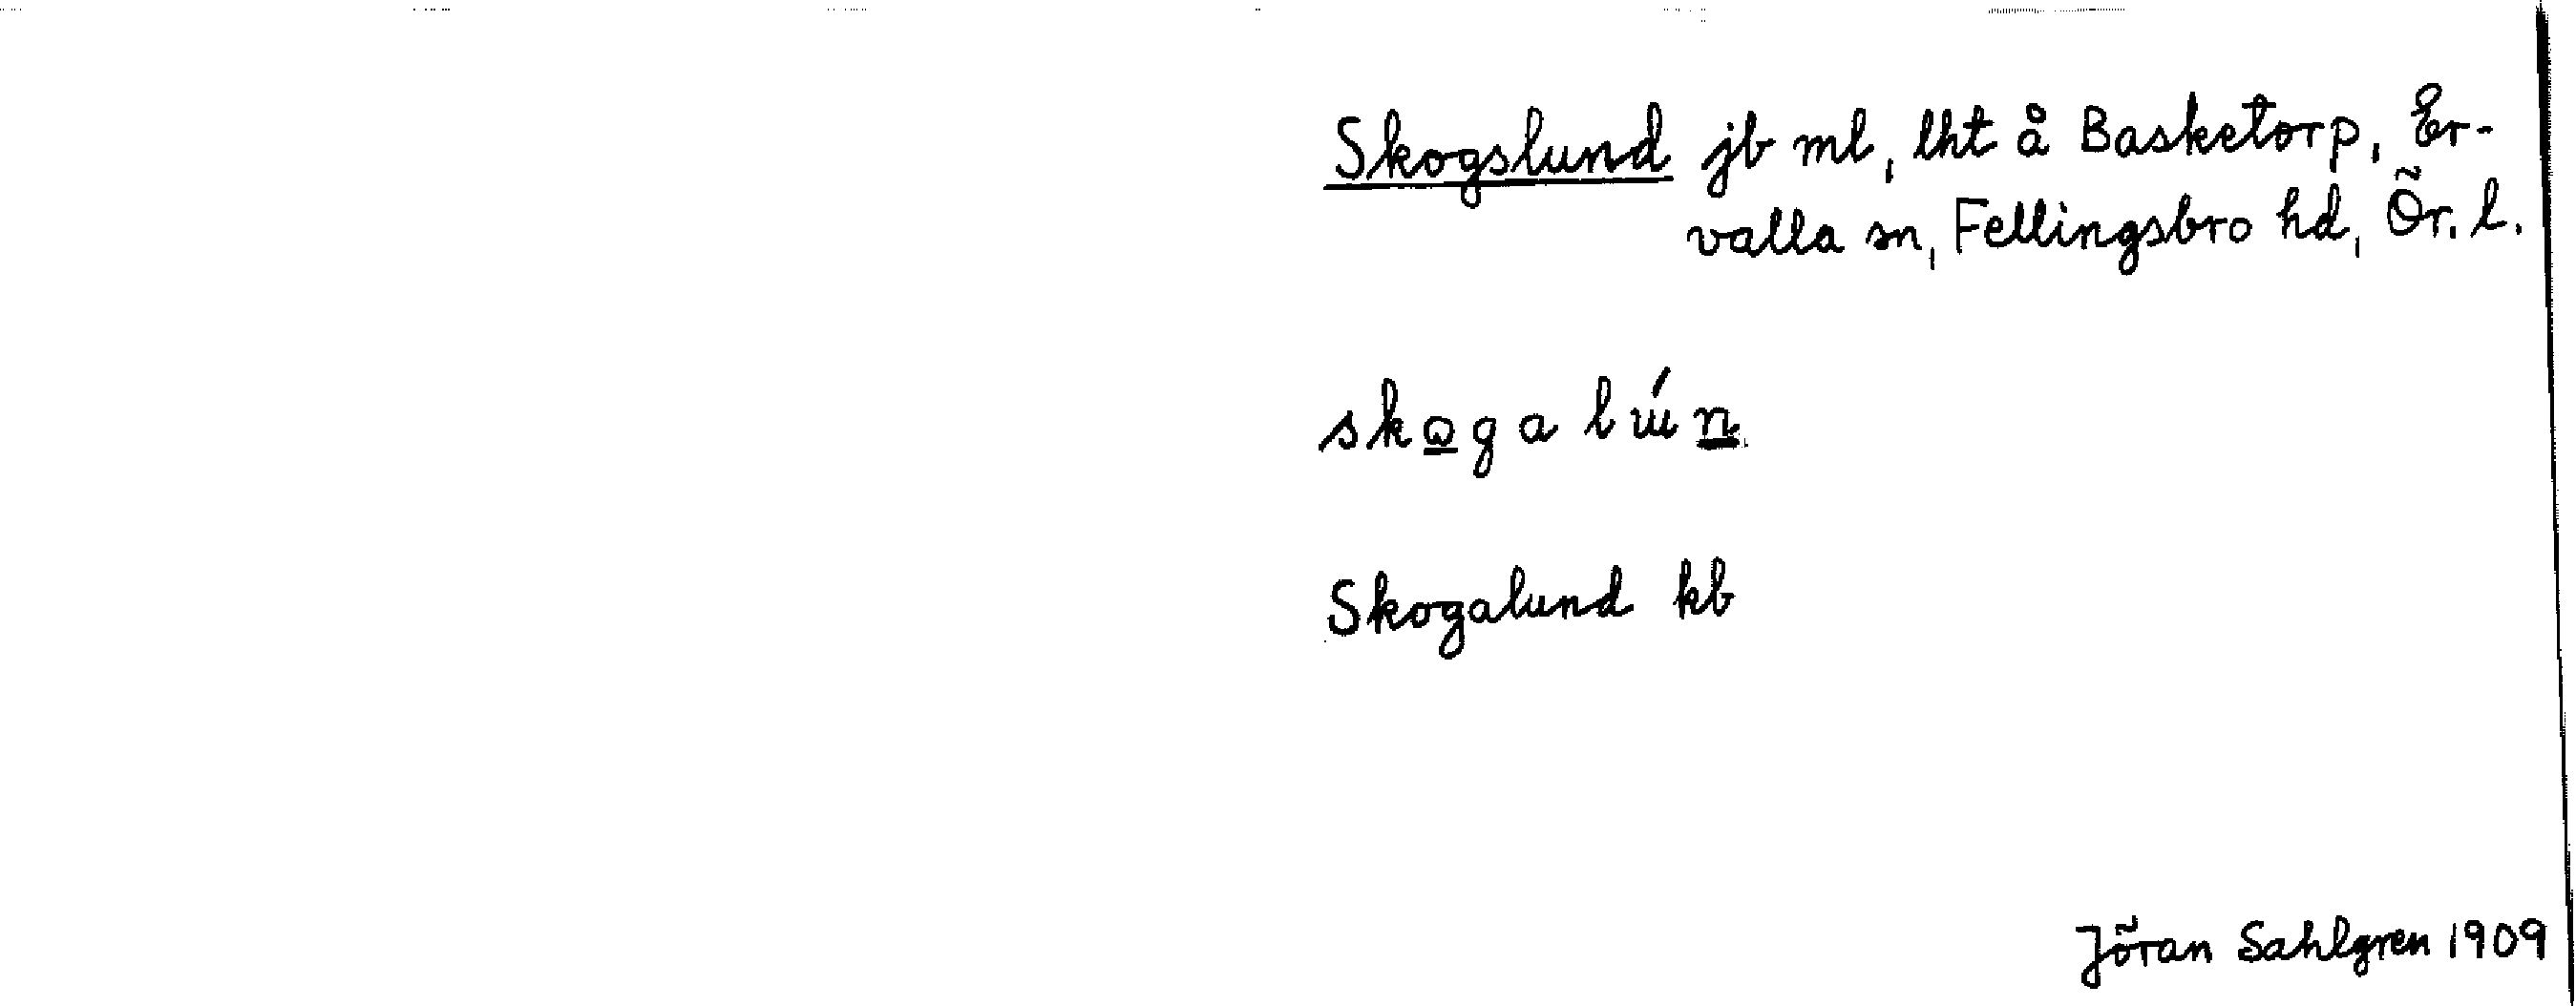 Skogslund jb ml, lht å Basketorp, Er-
valla sn, Fellingsbro hd, Ör. l.
skogalún
Skogalund kb
Jöran Sahlgren 1909